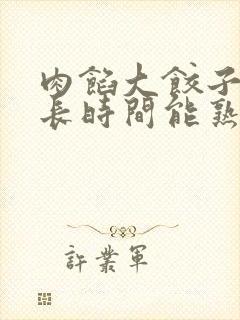 肉餡大餃子
長時間能熟
許業軍